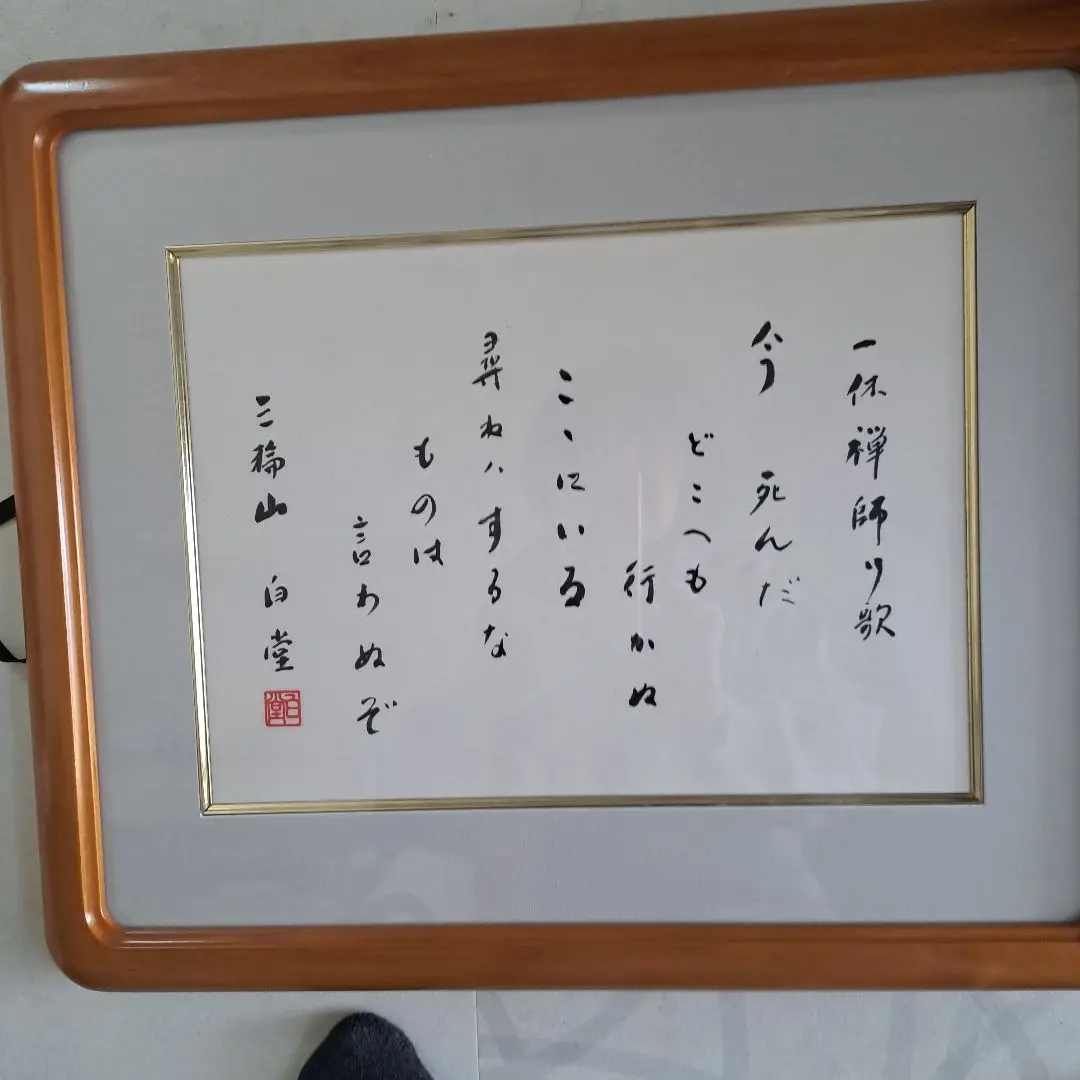 一休禅師り歌
今 死んだ
どこへも
行かぬ
こゝにいる
尋ねハするな
ものは
言わぬぞ
三輪山 白堂
白堂